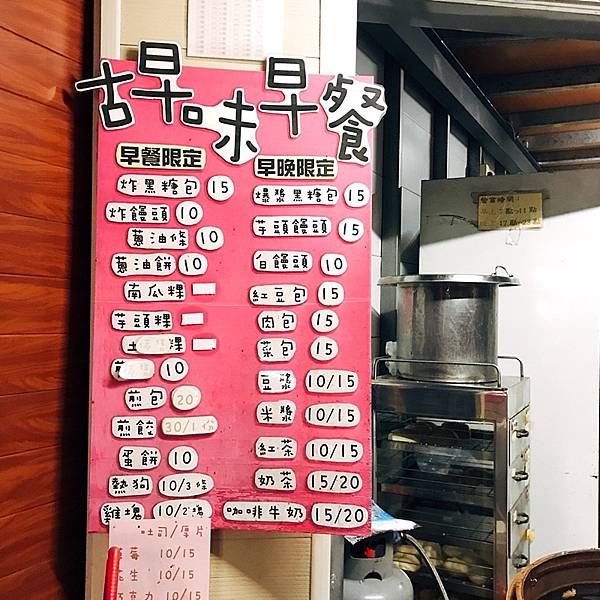 古早味早餐
早餐限定
炸黑糖包 15
炸饅頭 10
蔥油條 10
蔥油餅 10
南瓜粿
芋頭粿
土 粿
10
煎包 20
煎餃 30/1份
蛋餅 10
熱狗 10/3條
雞塊 10/2塊
早晚限定
爆漿黑糖包 15
芋頭饅頭 15
白饅頭 10
紅豆包 15
肉包 15
菜包 15
豆漿 10/15
米漿 10/15
紅茶 10/15
奶茶 15/20
咖啡牛奶 15/20
吐司/厚片
莓 10/15
生 10/15
巧克力 10/15
營業時間